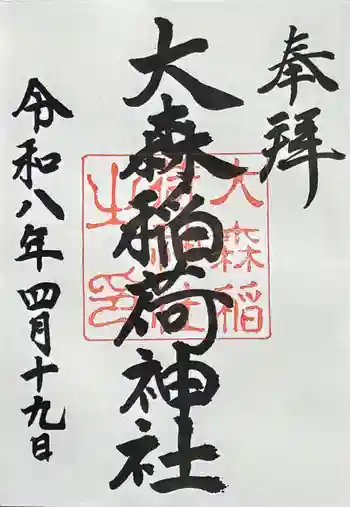 奉拝
大森稲荷神社
大森稲
荷神社
之印
令和八年四月十九日